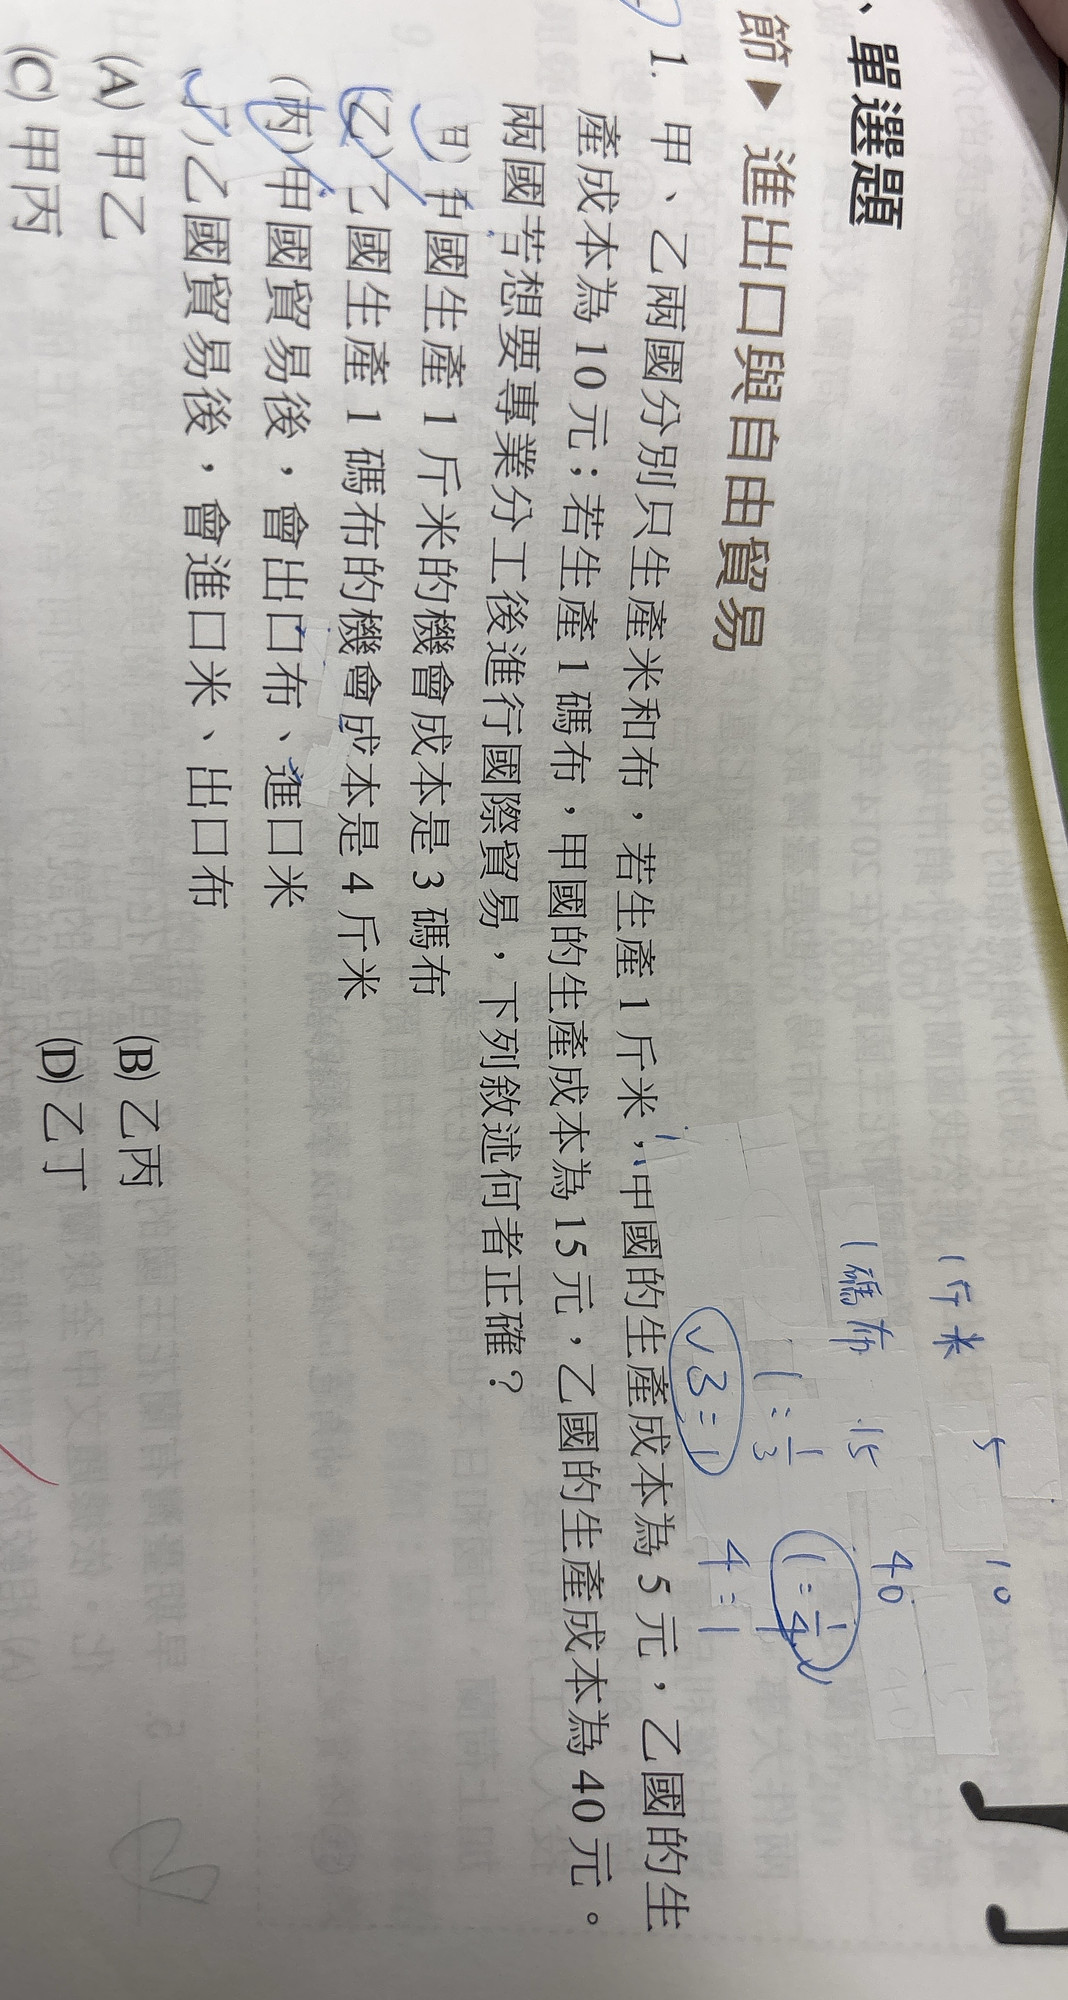 、單選題
節▶ 進出口與自由貿易
1斤米 5 10
1碼布 15 40
1:1/3 1:1/4
✓3=1 4=1
1. 甲、乙兩國分別只生產米和布，若生產1斤米，甲國的生產成本為5元，乙國的生
產成本為10元；若生產1碼布，甲國的生產成本為15元，乙國的生產成本為40元。
兩國若想要專業分工後進行國際貿易，下列敘述何者正確？
(甲)甲國生產1斤米的機會成本是3碼布
(乙)乙國生產1碼布的機會成本是4斤米
(丙)甲國貿易後，會出口布、進口米
(丁)乙國貿易後，會進口米、出口布
(A)甲乙 (B)乙丙
(C)甲丙 (D)乙丁